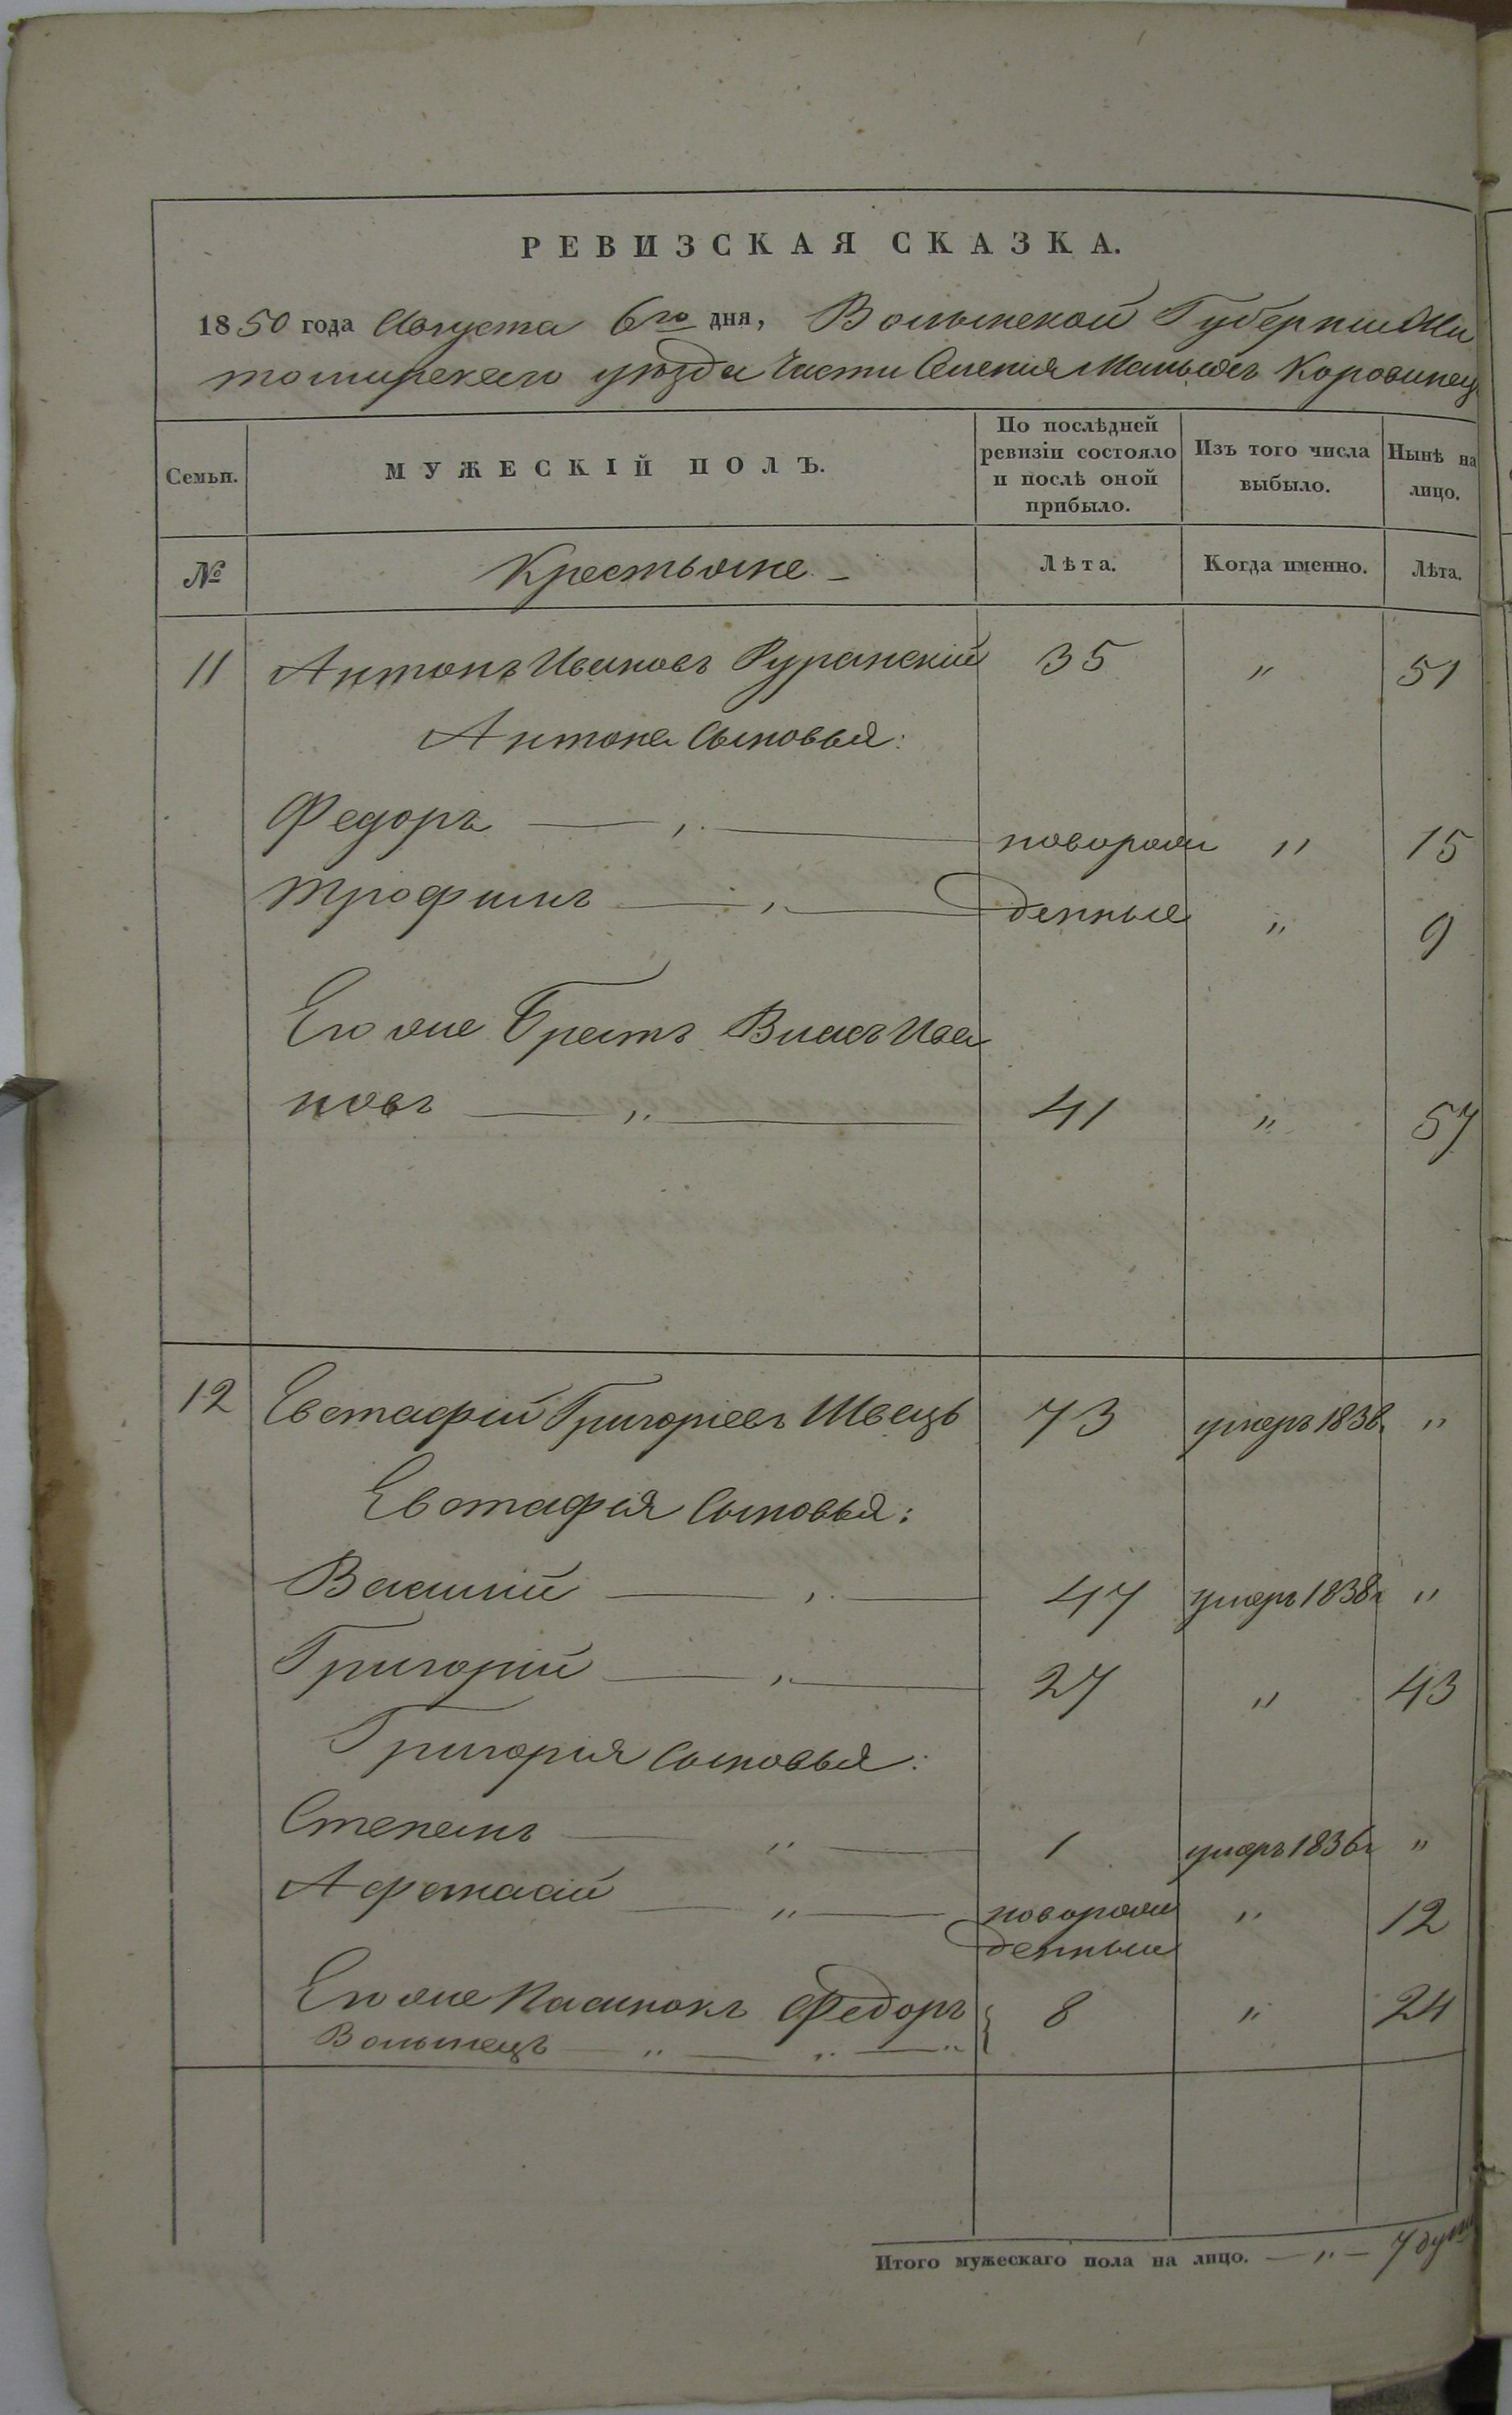 РЕВИЗСКАЯ СКАЗКА.
1850 года Августа 6го дня, Волынской Губерніи Жи
томирскаго уезда Части имения Малыхъ Коровинец
Семьи.
МУЖЕСКІЙ ПОЛЪ.
По послѣдней ревизіи состояло и послѣ оной прибыло.
Изъ того числа выбыло.
Нынѣ на лицо.
№ Крестьяне Лѣта. Когда именно. Лѣта.
11 Антонъ Ивановъ Руранскій 35 " 51
Антона Сыновья:
Федоръ новорож " 15
Трофимъ денные " 9
Его же Братъ Власъ Ива
новъ 41 " 57
12 Евстафій Григоріевъ Швецъ 73 умеръ 1836 "
Евстафія Сыновья:
Василій 47 умеръ 1838г "
Григорій 27 " 43
Григорія Сыновья:
Степанъ 1 умеръ 1836г "
Афанасій новорож " 12
денный
Его же Пасынокъ Федоръ 8 " 24
Волынецъ
Итого мужескаго пола на лицо. 7 душ